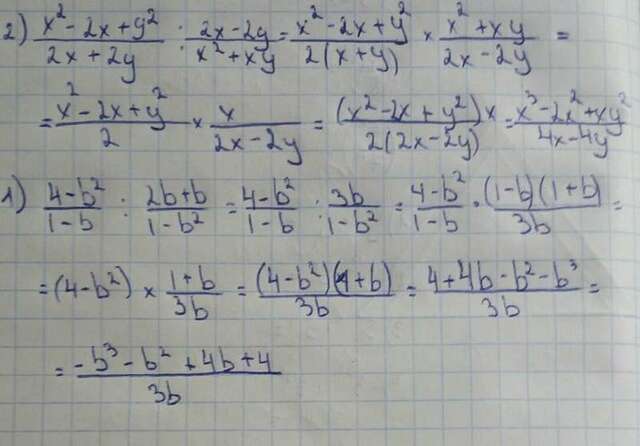 2) (x² - 2x + y²)/(2x + 2y) : (2x - 2y)/(x² + xy) = (x² - 2x + y²)/(2(x + y)) × (x² + xy)/(2x - 2y) =
= (x² - 2x + y²)/2 × x/(2x - 2y) = ((x² - 2x + y²)x)/(2(2x - 2y)) = (x³ - 2x² + xy²)/(4x - 4y)
1) (4 - b²)/(1 - b) : (2b + b)/(1 - b²) = (4 - b²)/(1 - b) : 3b/(1 - b²) = (4 - b²)/(1 - b) · ((1 - b)(1 + b))/3b =
= (4 - b²) × (1 + b)/3b = ((4 - b²)(1 + b))/3b = (4 + 4b - b² - b³)/3b =
= (-b³ - b² + 4b + 4)/3b